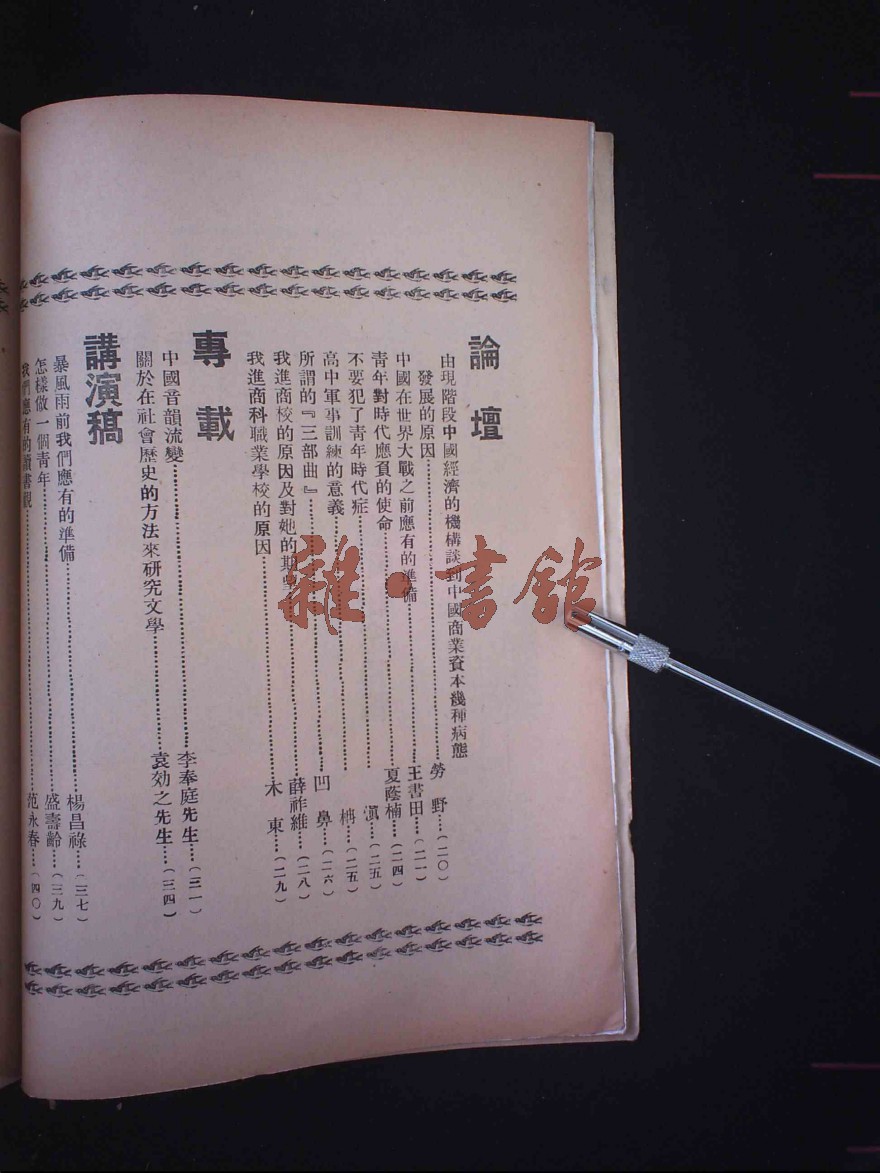 論壇
由現階段中國經濟的機構談到中國商業資本幾種病態
發展的原因……勞野……(二〇)
中國在世界大戰之前應有的準備……王書田……(二一)
青年對時代應負的使命……夏蔭楠……(二四)
不要犯了青年時代症……濵……(二五)
高中軍事訓練的意義……柟……(二五)
所謂的『三部曲』……凹鼻……(二六)
我進商校的原因及對她的期望……薛祚維……(二八)
我進商科職業學校的原因……木東……(二九)
專載
中國音韻流變……李奉庭先生……(三一)
關於在社會歷史的方法來研究文學……袁効之先生……(三四)
講演稿
暴風雨前我們應有的準備……楊昌祿……(三七)
怎樣做一個青年……盛壽齡……(三九)
我們應有的讀書觀……范永春……(四〇)
雜·書館